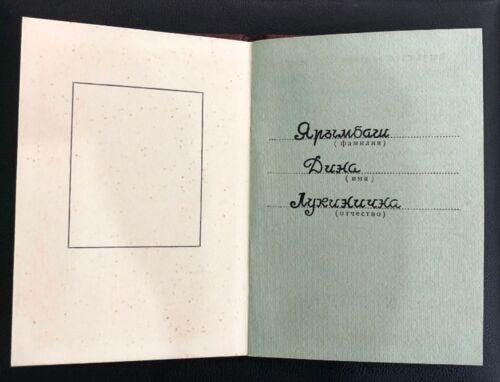 Ярымбаш
(фамилия)
Дина
(имя)
Лукинична
(отчество)